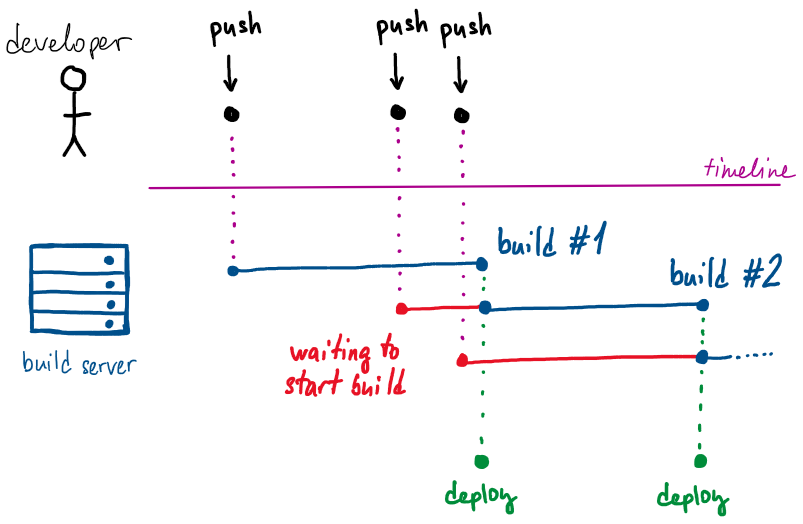 developer
push
push
push
timeline
build #1
build #2
build server
waiting to
start build
deploy
deploy